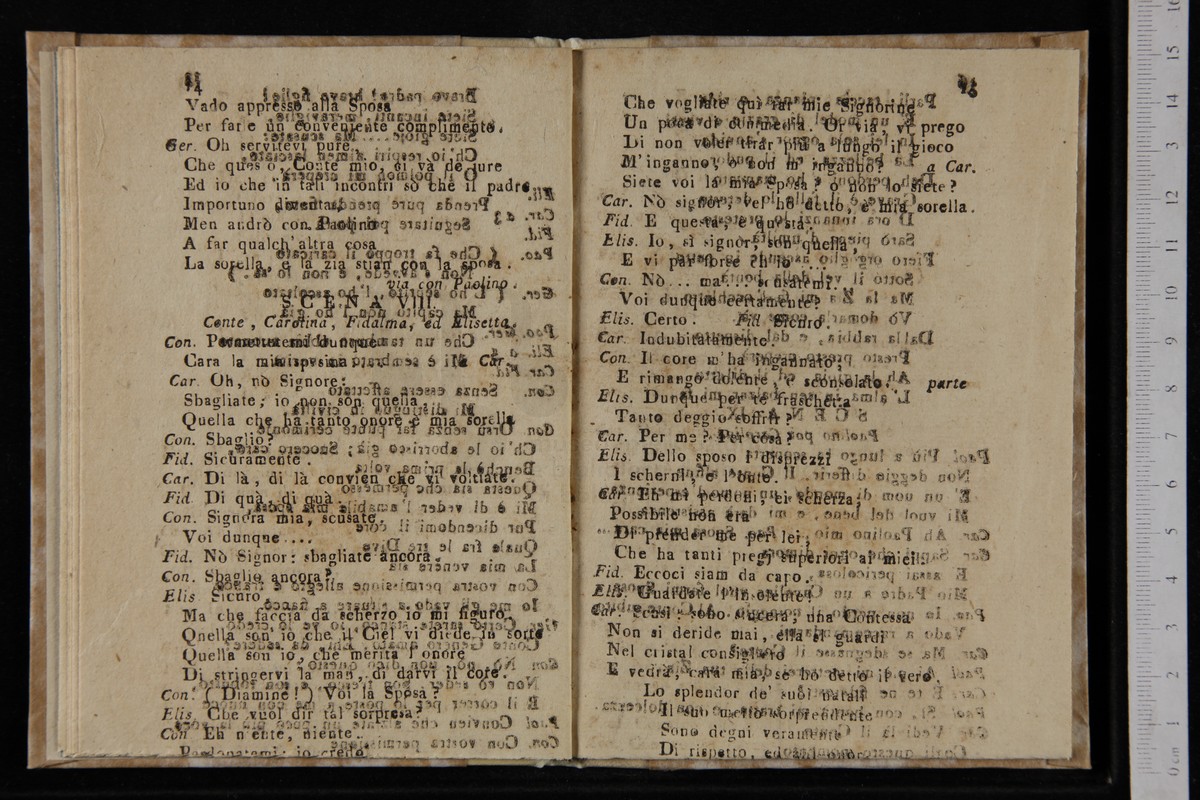 14
Vado appresso alla Sposa
Per fare un conveniente complimento.
Ger. Oh servitevi pure.
Che ques o, Conte mio, ci và de jure
Ed io che in tali incontri sò che il padre
Importuno diventa,
Men andrò con Paolino
A far qualch'altra cosa
La sorella, e la zia stian con la sposa.
via con Paolino.
SCENA VIII.
Conte, Carolina, Fidalma, ed Elisetta.
Con. Permettetemi dunque
Cara la mia sposina
a Car.
Car. Oh, nò Signore:
Sbagliate; io non son quella.
Quella che ha tanto onore è mia sorella
Con. Sbaglio?
Fid. Sicuramente.
Car. Di là, di là convien che vi voltiate.
Fid. Di quà, di quà.
Con. Signora mia, scusate.
Voi dunque....
Fid. Nò Signor: sbagliate ancora.
Con. Sbaglio ancora?
Elis Sicuro
Ma che faccia da scherzo io mi figuro.
Qnella son' io che il Ciel vi diede in sorte
Quella son io, che merita l onore
Di stringervi la man, di darvi il core.
Con. ( Diamine! ) Voi la Sposa?
Elis. Che vuol dir tal sorpresa?
Con Eh niente, niente..
Perdonatemi: io credo
Che vogliate qui far mie Signorine
Un poco di commedia. Or via, vi prego
Di non voler tirar più a lungo il gioco
M'inganno, o non m' inganno? a Car.
Siete voi la mia sposa, o non lo siete?
Car. Nò signor, ve l' ho detto, è mia sorella.
Fid. E questa, è questa.
Elis. Io, sì signor, son quella,
E vi par forse ch' io ...
Con. Nò... ma... scusatemi.
Voi dunque certamente?
Elis. Certo. Fid Sicuro.
Car. Indubitatamente.
Con. Il core m'ha ingannato,
E rimango dolente, e sconsolato. parte
Elis. Dunque per te fraschetta
Tanto deggio soffrir?
Car. Per me? Per cosa?
Elis. Dello sposo i disprezzi
I scherni, e l'onte.
Car Eh mi perdoni, ei scherza,
Possibile non era
Di prender me per lei,
Che ha tanti pregj superiori ai miei.
Fid. Eccoci siam da capo.
Elis. Guardate l' insolente!
Car. scusi: sono sincera; una Contessa
Non si deride mai, ella si guardi
Nel cristal consigliero
E vedrà, cara mia, se ho detto il vero.
Lo splendor de' suoi natali
Il suo merito sorprendente
Sono degni veramente
Di rispetto, ed